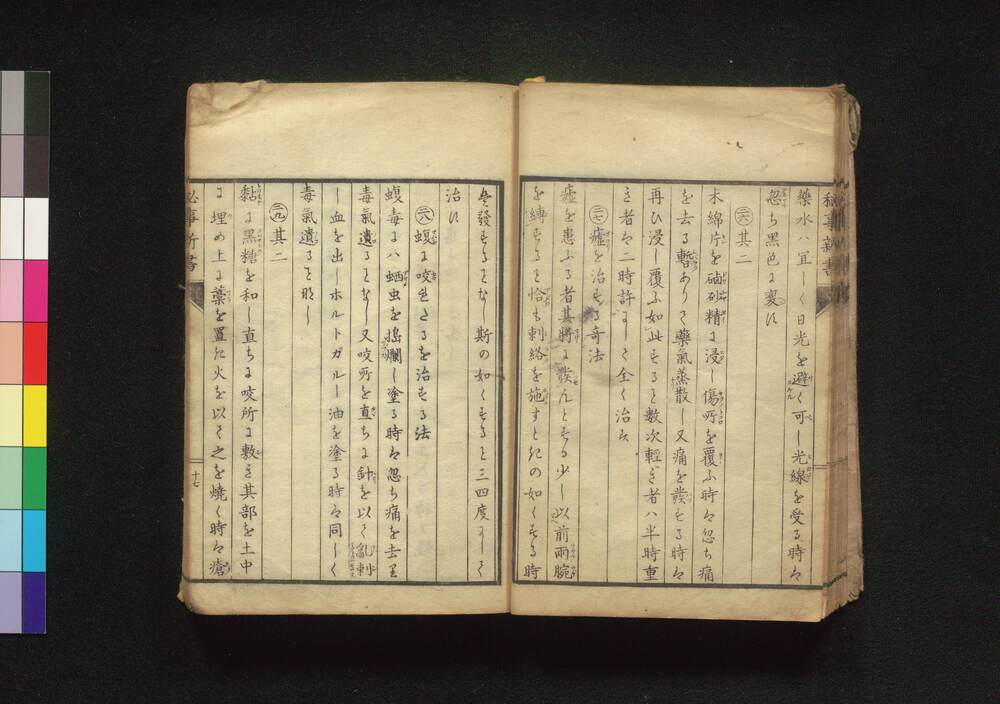 藥水ハ宜しく日光を避く可し光線を受る時は
忽ち黒色に変ず
㊱其二
木綿片を硇砂精に浸し傷所を覆ふ時は忽ち痛
を去る暫ありて藥氣蒸散し又痛を發する時は
再ひ浸し覆ふ如此すること数次輕き者ハ半時重
き者は二時許にして全く治す
㊲瘧を治する奇法
瘧を患ふる者其將に發んとする少し以前兩腕
を縛すること恰も刺絡を施すときの如くする時
は發することなし斯の如くすること三四度にして
治す
㊳蝮に咬れたるを治する法
蝮毒にハ蛞虫を搗爛し塗る時は忽ち痛を去り
毒氣遺ることなし又咬所を直ちに針を以て亂刺
し血を出しホルトガルー油を塗る時は同しく
毒氣遺ること那し
㊴其二
黏に黒糖を和し直ちに咬所に敷き其部を土中
に埋め上に藁を置き火を以て之を燒く時は瘡
十七
祕事新書